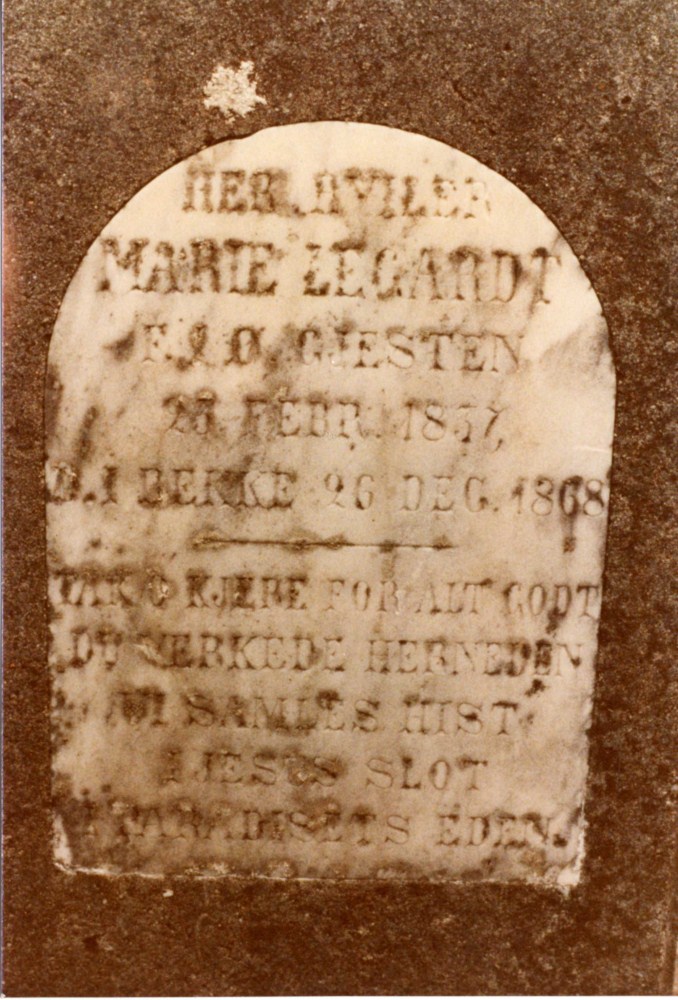 HER HVILER
MARIE LEGARDT
F. I Ø. GJESTEN
23 FEBR. 1837,
D. I BEKKE 26 DEC. 1868
TAK O KJERE FOR ALT GODT
DU VERKEDE HERNEDEN
VI SAMLES HIST
I JESUS SLOT
I PARADISETS EDEN.